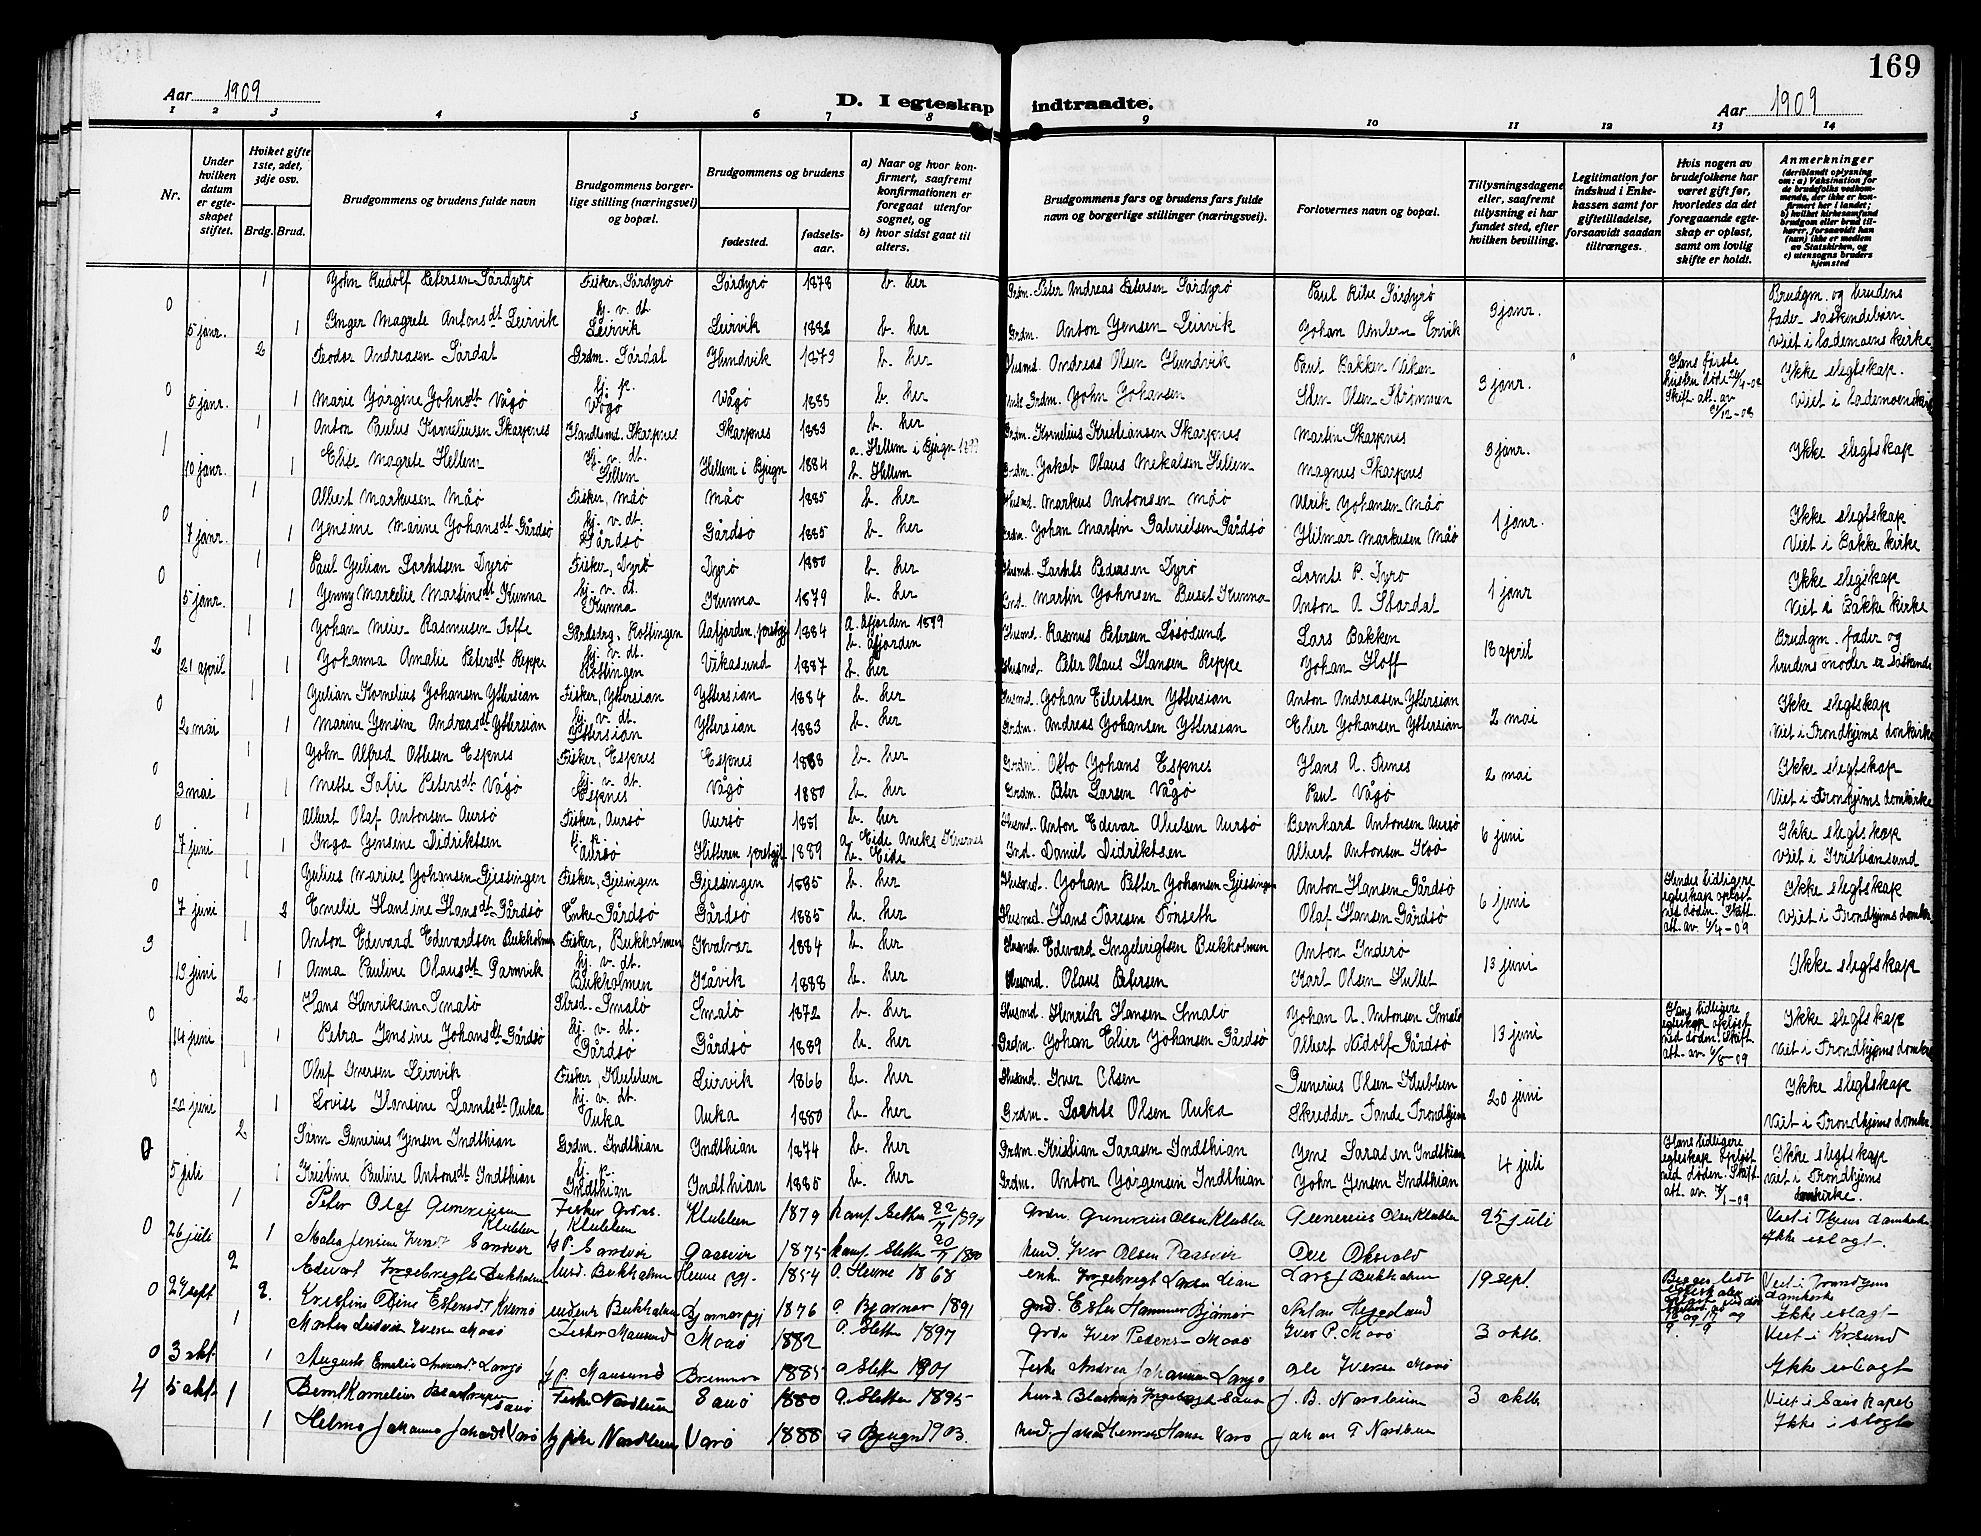 169
Aar 1909
D. I egteskap indtraadte.
Aar 1909
1 2 3 4 5 6 7 8 9 10 11 12 13 14
Nr.
Under hvilken datum er egteskapet stiftet.
Hviket gifte 1ste, 2det, 3dje osv.
Brdg. Brud.
Brudgommens og brudens fulde navn
Brudgommens borgerlige stilling (næringsvei) og bopæl.
Brudgommens og brudens
fødested.
fødselsaar.
a) Naar og hvor konfirmert, saafremt konfirmationen er foregaat utenfor sognet, og
b) hvor sidst gaat til alters.
Brudgommens fars og brudens fars fulde navn og borgerlige stillinger (næringsvei).
Forlovernes navn og bopæl.
Tillysningsdagene eller, saafremt tillysning ei har fundet sted, efter hvilken bevilling.
Legitimation for indskud i Enkekassen samt for giftetilladelse, forsaavidt saadan tiltrænges.
Hvis nogen av brudefolkene har været gift før, hvorledes da det foregaaende egteskap er opløst, samt om lovlig skifte er holdt.
Anmerkninger (deriblandt oplysning om: a) Vaksination for de brudefolks vedkommende, der ikke er konfirmert her i landet; b) hvilket kirkesamfund brudgom eller brud tilhører, forsaavidt han (hun) ikke er medlem av Statskirken, og c) utensogns bruders hjemsted
1 John Rudolf Petersen Sørdyrø Fisker, Sørdyrø Sørdyrø 1878 b. her Grdm. Peter Andreas Petersen Sørdyrø Paul Ribe Sørdyrø 3 janr. Brudgm. og brudens
0 5 janr. 1 Inger Magrete Antonsdt Leirvik hj. v. dt. Leirvik Leirvik 1882 b. her Grdm. Anton Jensen Leirvik Johan Ervik fader søskendebørn Viet i Lademoens kirke
2 Peodor Andreasen Sørdal Grdm. Sørdal Hundvik 1873 b. her Husmd. Andreas Olsen Hundvik Paul Bakken Viken 3 janr. Hans første hustru døde Skift. att. av 21/12-08 Ikke slegtskap.
0 5 janr. 1 Marie Jørgine Johnsdt Vågø hj. p. Vågø Vågø 1883 b. her Grdm. John Johansen Sten Olsen Strømmen Viet i Lademoens kirke
1 Anton Paulus Korneliusen Skarpnes Handlsmd. Skarpnes Skarpnes 1883 b. her Grdm. Kornelius Kristiansen Skarpnes Martin Skarpnes 3 janr. Ikke slegtskap
1 10 janr. 1 Elise Magrete Hellem hj. v. dt. Hellem Hellem i Bjugn 1884 a. Hellem i Bjugn b. Hellem Grdm. Jakob Olaus Mekalsen Hellem Magnus Skarpnes
1 Albert Markusen Måø Fisker, Måø Måø 1885 b. her Husmd. Markus Antonsen Måø Ulrik Johansen Måø 1 janr. Ikke slegtskap
0 7 janr. 1 Jensine Marine Johansdt Gårdsø hj. v. dt. Gårdsø Gårdsø 1885 b. her Grdm. Johan Martin Gabrielsen Gårdsø Hilmar Markusen Måø Viet i Bakke kirke
1 Paul Julian Lorntsen Dyrø Fisker, Dyrø Dyrø 1880 b. her Husmd. Lornts Pedersen Dyrø Lornts P. Dyrø 1 janr Ikke slegtskap
0 5 janr. 1 Jenny Marcelie Martinsdt Kunna hj. v. dt. Kunna Kunna 1879 b. her Martin Johnsen Buset Kunna Anton A. Stordal Viet i Bakke kirke
1 Johan Meier Rasmusen Teffe Gårdsdrg, Kottingen Aafjorden, prestgj. 1884 a. Afjorden 1899 b. Afjorden Husmd. Rasmus Petersen Lars Bakken 18 april Brudgm. fader og
2 21 april 1 Johanna Amalie Petersdt Reppe hj. v. dt. Kottingen Vikasund 1887 b. her Husmd. Peter Olaus Hansen Reppe Johan Hoff brudens moder er søskende
1 Julian Kornelius Johansen Yttersian Fisker, Yttersian Yttersian 1884 b. her Husmd. Johan Eilertsen Yttersian Anton Andreasen Yttersian 2 mai Ikke slegtskap
0 2 mai 1 Marine Jensine Andreasdt Yttersian hj. v. dt. Yttersian Yttersian 1883 b. her Grdm. Andreas Johansen Yttersian Elier Johansen Yttersian Viet i Trondhjems domkirke
1 John Alfred Ottesen Espnes Fisker, Espnes Espnes 1888 b. her Grdm. Otto Johans Espnes Hans A. 2 mai Ikke slegtskap
0 3 mai 1 Mette Sofie Petersdt Vågø hj. v. dt. Espnes Vågø 1880 b. her Grdm. Peter Larsen Vågø Paul Vågø Viet i Trondhjems domkirke
1 Albert Olaf Antonsen Aursø Fisker, Aursø Aursø 1881 b. her Husmd. Anton Edevar Nielsen Aursø Bernhard Antonsen Aursø 6 juni Ikke slegtskap
0 7 juni 1 Inga Jensine Didriktsen hj. p. Aursø Hitteren prestgjl 1889 a. Eide Aneks Kvernes b. Eide Ind. Daniel Didriktsen Albert Antonsen Viet i Kristiansund
1 Julius Marius Johansen Gjessingen Fisker, Gjessingen Gjessingen 1885 b. her Husmd. Johan Petter Johansen Gjessingen Anton Hansen Gårdsø 6 juni Hendes tidligere egteskap opløst ved døden. Skift. att. av -09 Ikke slegtskap
0 7 juni 2 Emelie Hansine Hansdt Gårdsø Enke Gårdsø Gårdsø 1885 b. her Husmd. Hans Forseth Olaf Hansen Gårdsø Viet i Trondhjems domkir.
1 Anton Edevard Edevardsen Bukholmen Fisker, Bukholmen Kvalvær 1884 b. her Husmd. Edevard Ingebrigtsen Bukholmen Anton Inderø 13 juni Ikke slegtskap
3 13 juni 1 Anna Pauline Olausdt hj. v. dt. Bukholmen Håvik 1888 b. her Husmd. Olaus Petersen Karl Olsen Hullet
2 Hans Henriksen Smalø Strsd. Smalø Smalø 1872 b. her Husmd. Henrik Hansen Smalø Johan A. Antonsen Smalø 13 juni Hans tidligere egteskap opløst ved døden. Skift. att. av -09 Ikke slegtskap
0 14 juni 1 Petra Jensine Johansdt Gårdsø hj. v. dt. Gårdsø Gårdsø 1889 b. her Grdm. Johan Elier Johansen Gårdsø Albert Nidolf Gårdsø Viet i Trondhjems domkir.
1 Oluf Iversen Leirvik Fisker, Klubben Leirvik 1866 b. her Husmd. Iver Olsen Gunerius Olsen Klubben 20 juni Ikke slegtskap
0 22 juni 1 Lovise Hansine Lorntsdt Auka hj. v. dt. Auka Auka 1880 b. her Grdm. Lornts Olsen Auka Skredder Fande Trondhjem Viet i Trondhjems domkir.
2 Sivm Gunerius Jensen Indthian Grdm. Indthian Indthian 1874 b. her Grdm. Kristian Larsen Indthian Jens Larsen Indthian 4 juli Hans tidligere egteskap opløst ved døden. Skift. att. av -09 Ikke slegtskap
0 5 juli 1 Kristine Pauline Antonsdt Indthian hj. p. Indthian Indthian 1885 b. her Grdm. Anton Jørgensen Indthian John Jensen Indthian Viet i Trondhjems domkirke.
1 Peter Olaf Guneriusen Klubben Fisker Klubben Klubben 1879 konf. Sletten 1894 Grdm. Gunerius Olsen Klubben Gunerius Olsen Klubben 25 juli Viet i Thjems domkirke
0 26 juli 1 Malea Jensine Sandvær Sandvær Gaasvær 1875 konf. Sletten 1890 husm. Iver Olsen Gaasvær Ole Ikke i slegt.
2 Edevart Ingebrigts Bukholm husd. Bukholmen Hevne pgj. 1854 a. Hevne 1868 enk. Ingebrigt Larsen Lian Lars Bukholm 19 sept. Begges tidl egteskaber Viet i Trondhjems domkirke
0 27 sept 2. Kristine Estensdt Bukholmen Bjørnør pgj 1876 a. Bjørnør 1891 gmd. Esten Hammer Bjørnør Anton Hegeland Ikke i slegt
1 Morten Ludvik Iversen Maaø Fisker Mausund Maaø 1882 a. Sletten 1897 Grdm Iver Petersen Maaø Iver P. Maaø 3 oktb. Viet i Krsund
0 3 okt. 1 Augusta Emelie Mausund Bremnes 1885 a. Sletten 1901 Fisk. Andrea Johannesen Ole Iversen Maaø Ikke i slegt
4 5 okt. 1 Bernt Kornelius Sauø Fisker Nordleien Sauø 1880 a. Sletten 1895 Ingebrigt Sauø J. B. Nordleien 3 oktb. Viet i Saus kapel
1 Helma Johanna Johansdt Varø hj. pike Nordleien Varø 1888 a Bjugn 1903. Johan Henrik Hansen Varø Johan Nordleien Ikke i slegt